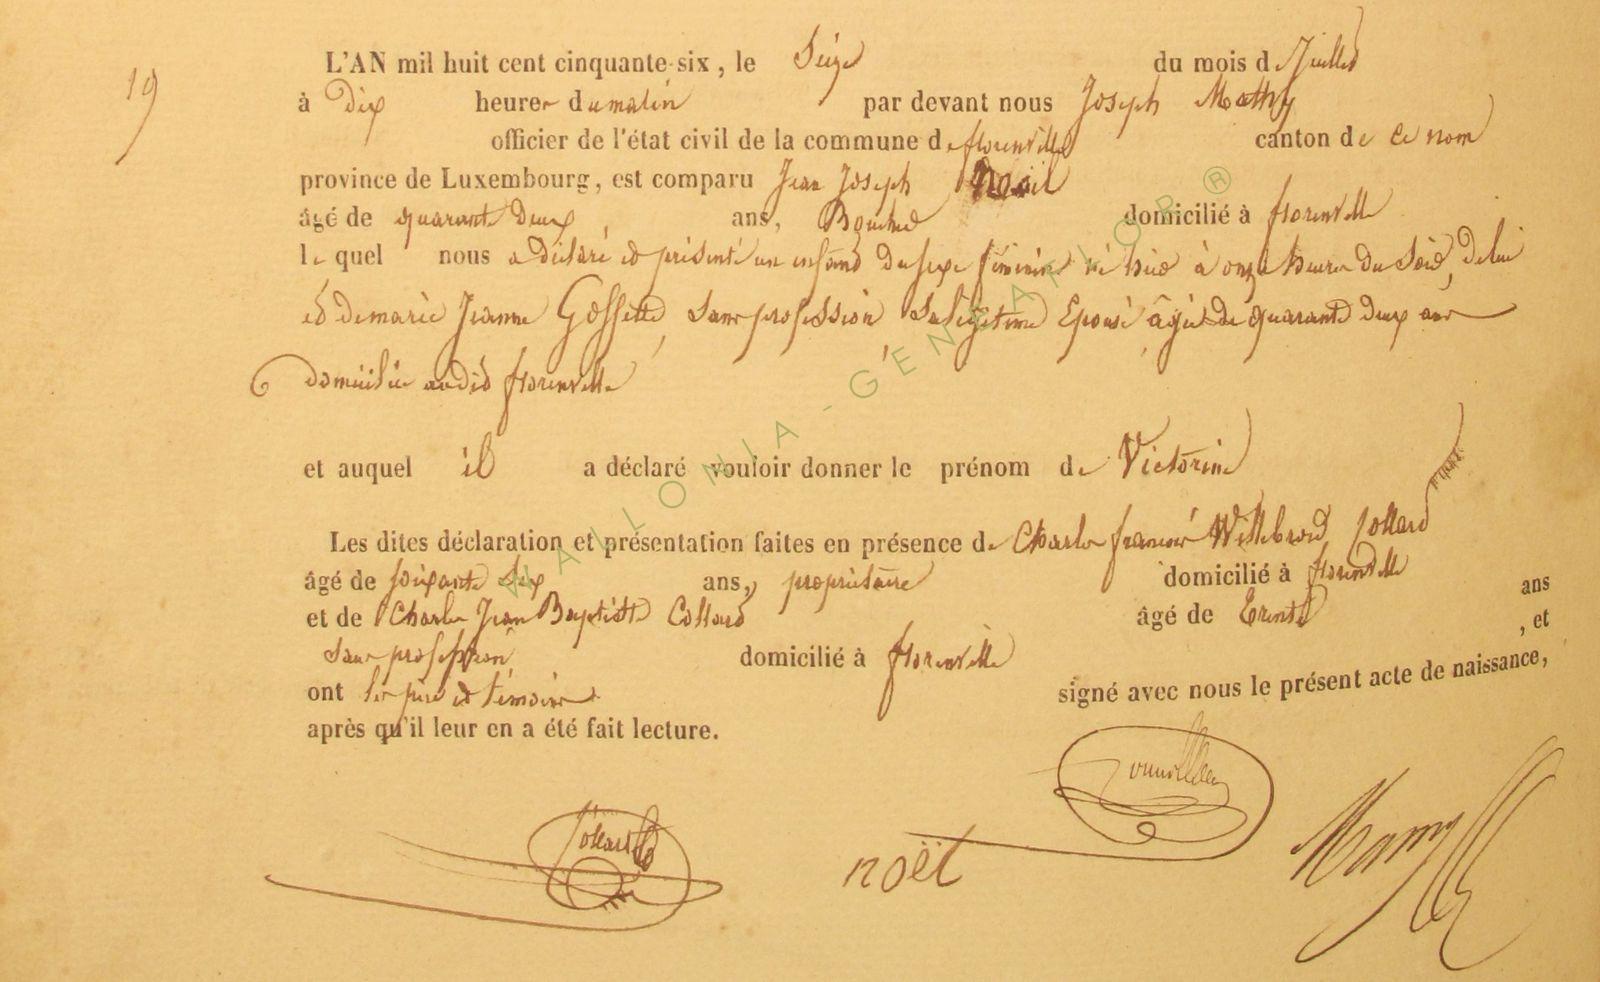 19
L'AN mil huit cent cinquante-six, le Seize du mois de Juillet
à dix heures du matin par devant nous Joseph Mathy
officier de l'état civil de la commune de florenville canton de ce nom
province de Luxembourg, est comparu Jean Joseph Noël
âgé de quarante deux ans, Boucher domicilié à florenville
le quel nous a déclaré et présenté un enfant du sexe féminin né hier à onze heures du Soir, de lui
et de marie Jeanne Gossette, sans profession, Sa légitime Epouse âgée de quarante deux ans
domiciliée audit florenville
et auquel il a déclaré vouloir donner le prénom de Victorine
Les dites déclaration et présentation faites en présence de Charles françois Willebrord Collard
âgé de soixante ans, propriétaire domicilié à florenville
et de Charles Jean Baptiste Collard âgé de Trente ans
sans profession domicilié à florenville, et
ont les père et témoins signé avec nous le présent acte de naissance,
après qu'il leur en a été fait lecture.
Collard
noël
WALLONIA-GENEAKLOP ®